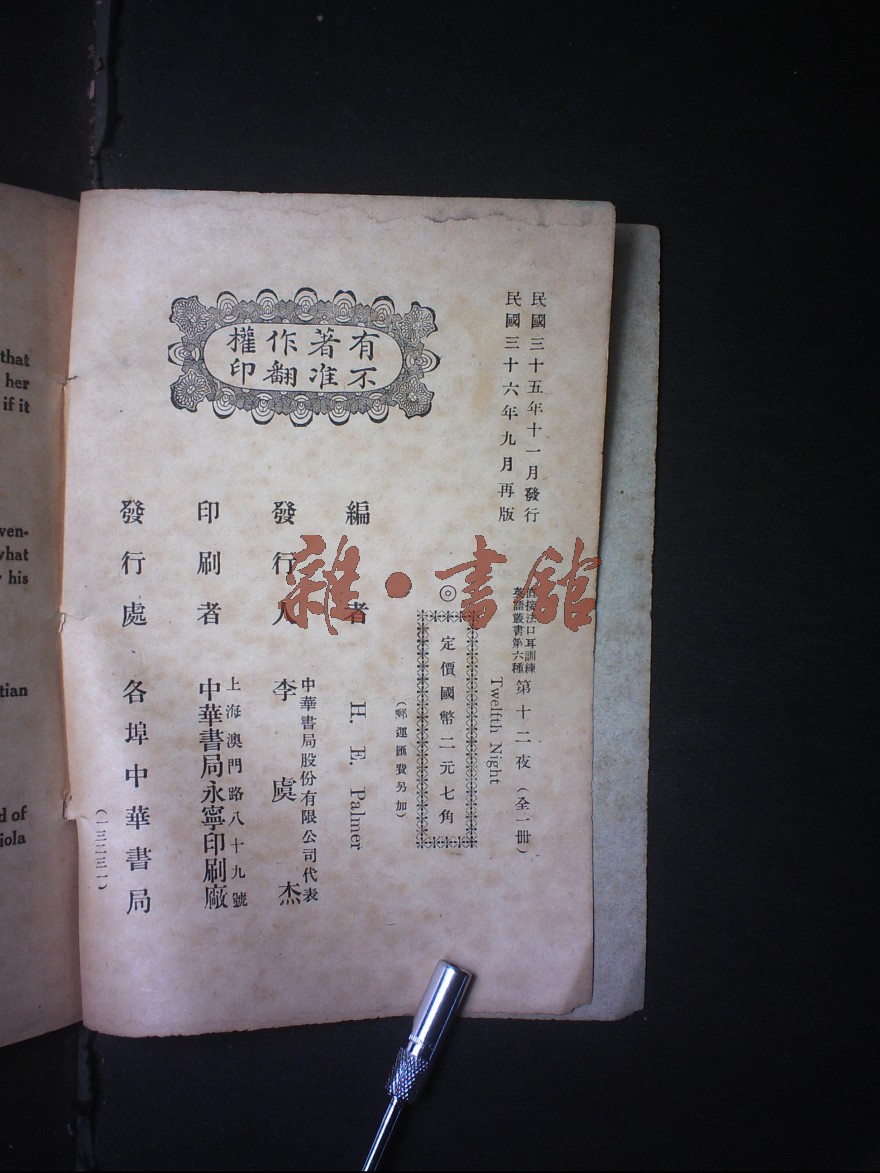 that
her
if it
ven-
what
his
tian
d of
iola
民國三十五年十一月發行
民國三十六年九月再版
直接法口耳訓練
英語叢書第六種
第十二夜（全一冊）
Twelfth Night
◎定價國幣二元七角
（郵運匯費另加）
有著作權
不准翻印
編者 H. E. Palmer
發行人
中華書局股份有限公司代表
李虞杰
印刷者
上海澳門路八十九號
中華書局永寧印刷廠
發行處 各埠中華書局
（一三二三一）
雜·書館